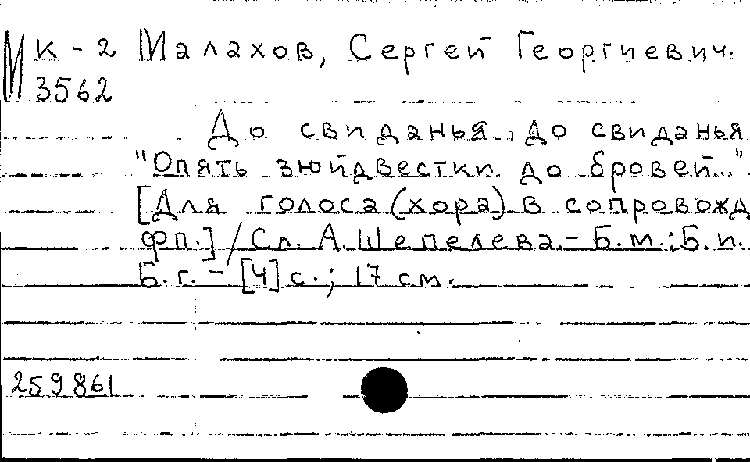 МК-2 Малахов, Сергей Георгиевич.
3562
До свиданья, до свиданья
"Опять зюйдвестки до бровей..."
[Для голоса (хора) в сопровожд
фп.] / Сл. А. Шепелева. - Б.м.: Б.и.
Б.г. - [4] с.; 17 см.
259861